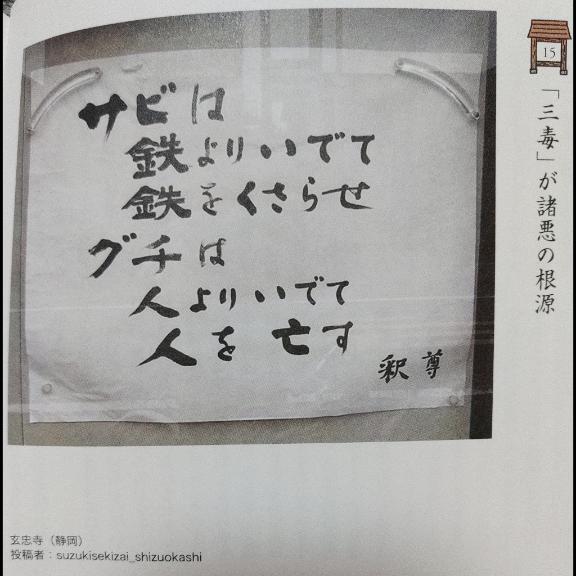 15
「三毒」が諸悪の根源
サビは
鉄よりいでて
鉄をくさらせ
グチは
人よりいでて
人を亡す
釈尊
玄忠寺（静岡）
投稿者：suzukisekizai_shizuokashi